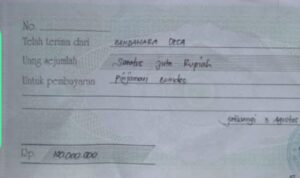 No.
Telah terima dari BENDAHARA DESA
Uang sejumlah Seratus Juta Rupiah
Untuk pembayaran Pinjaman Bumdes
3 Agustus
Rp. 100.000.000